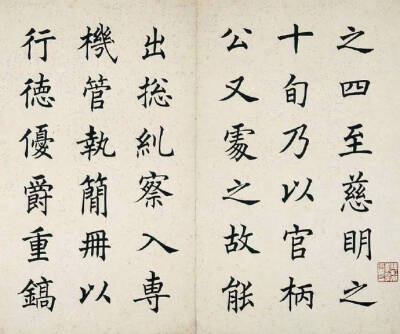 之四至慈明之
十旬乃以官柄
公又處之故能
出総糺察入専
機管執簡冊以
行徳優爵重鎬